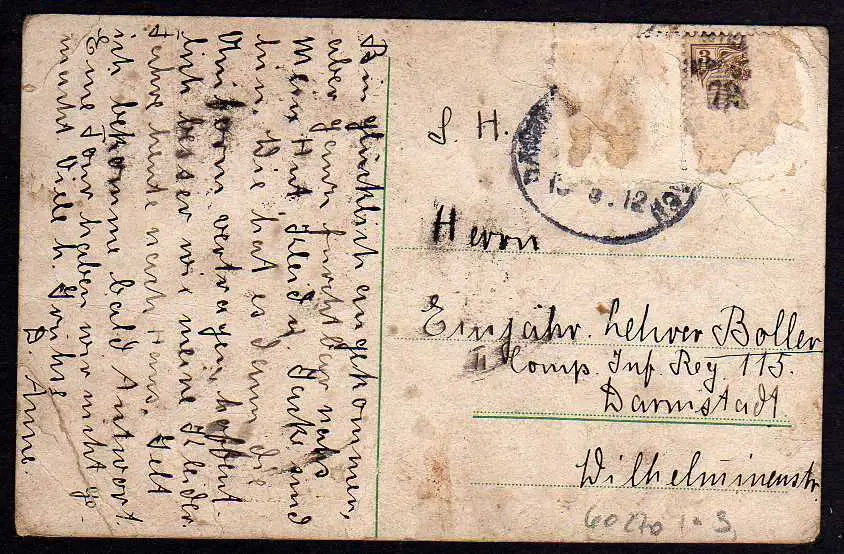 Bin glücklich angekommen,
aber ganz furchtbar nass
mein Hut, Kleid u. Jacke sind
hin. Wie hat es denn die
Uniform vertragen, hoffent-
lich besser wie meine Kleider
fahre heute nach Haus.
ich bekomme bald Antwort.
Eine Tour haben wir nicht ge-
macht Viele h. Grüsse
D. Anne.
S. H.
3
12
Herrn
Einjähr. Lehrer Boller
Comp. Inf. Reg. 115.
Darmstadt
Wilhelminenstr
60270